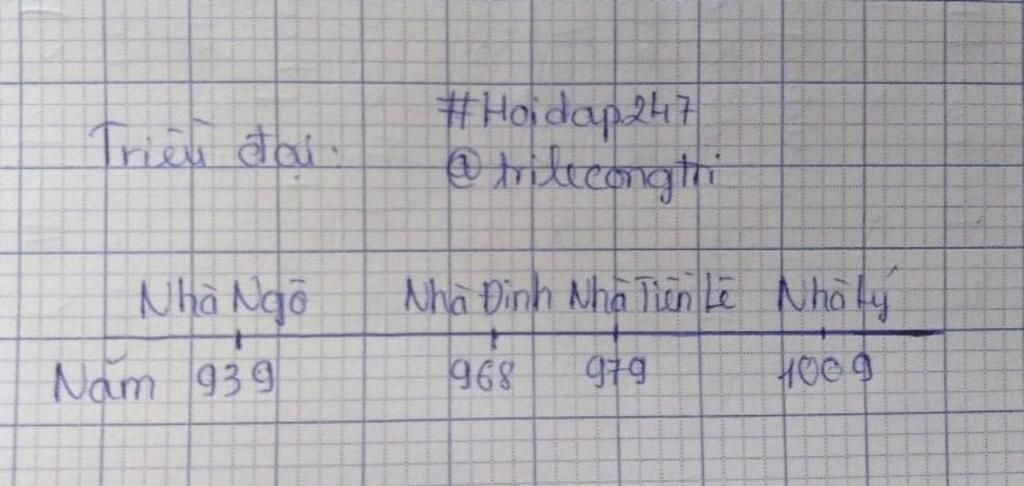 #Hoidap247
Triều đại.
@trilecongtri
Nhà Ngô Nhà Đinh Nhà Tiền Lê Nhà Lý
Năm 939 968 979 1009